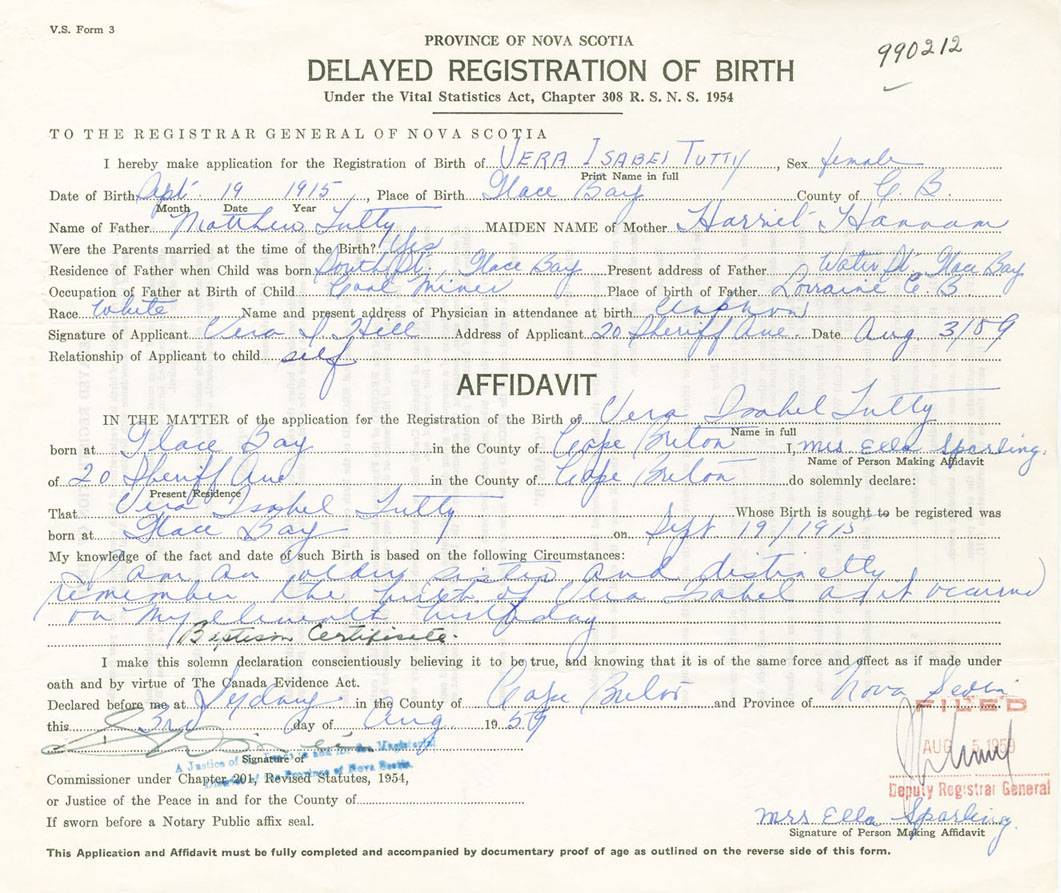 V.S. Form 3
PROVINCE OF NOVA SCOTIA
990212
DELAYED REGISTRATION OF BIRTH
Under the Vital Statistics Act, Chapter 308 R. S. N. S. 1954
TO THE REGISTRAR GENERAL OF NOVA SCOTIA
I hereby make application for the Registration of Birth of VERA ISABEL TUTTY, Sex female
Print Name in full
Date of Birth Sept. 19 1915, Place of Birth Glace Bay County of C. B.
Month Date Year
Name of Father Matthew Tutty MAIDEN NAME of Mother Harriet Hannam
Were the Parents married at the time of the Birth? Yes
Residence of Father when Child was born South St., Glace Bay Present address of Father Water St., Glace Bay
Occupation of Father at Birth of Child Coal Miner Place of birth of Father Lorraine C. B.
Race White Name and present address of Physician in attendance at birth
Signature of Applicant Vera I. Hill Address of Applicant 20 Sheriff Ave. Date Aug 3/59
Relationship of Applicant to child self
AFFIDAVIT
IN THE MATTER of the application for the Registration of the Birth of Vera Isabel Tutty
Name in full
born at Glace Bay in the County of Cape Breton I, Mrs Ella Sparling.
Name of Person Making Affidavit
of 20 Sheriff Ave in the County of Cape Breton do solemnly declare:
Present Residence
That Vera Isabel Tutty Whose Birth is sought to be registered was
born at Glace Bay on Sept 19/1915
My knowledge of the fact and date of such Birth is based on the following Circumstances:
I am an older sister and distinctly
remember the birth of Vera Isabel as it occured
on my eleventh birthday
Baptism Certificate.
I make this solemn declaration conscientiously believing it to be true, and knowing that it is of the same force and effect as if made under
oath and by virtue of The Canada Evidence Act.
Declared before me at Sydney in the County of Cape Breton and Province of Nova Scotia
this 3rd day of Aug 1959
FILED
AUG 5 1959
Deputy Registrar General
Signature of
A Justice of the Magisterial
of the Province of Nova Scotia.
Commissioner under Chapter 201, Revised Statutes, 1954,
or Justice of the Peace in and for the County of
If sworn before a Notary Public affix seal.
Mrs Ella Sparling.
Signature of Person Making Affidavit
This Application and Affidavit must be fully completed and accompanied by documentary proof of age as outlined on the reverse side of this form.